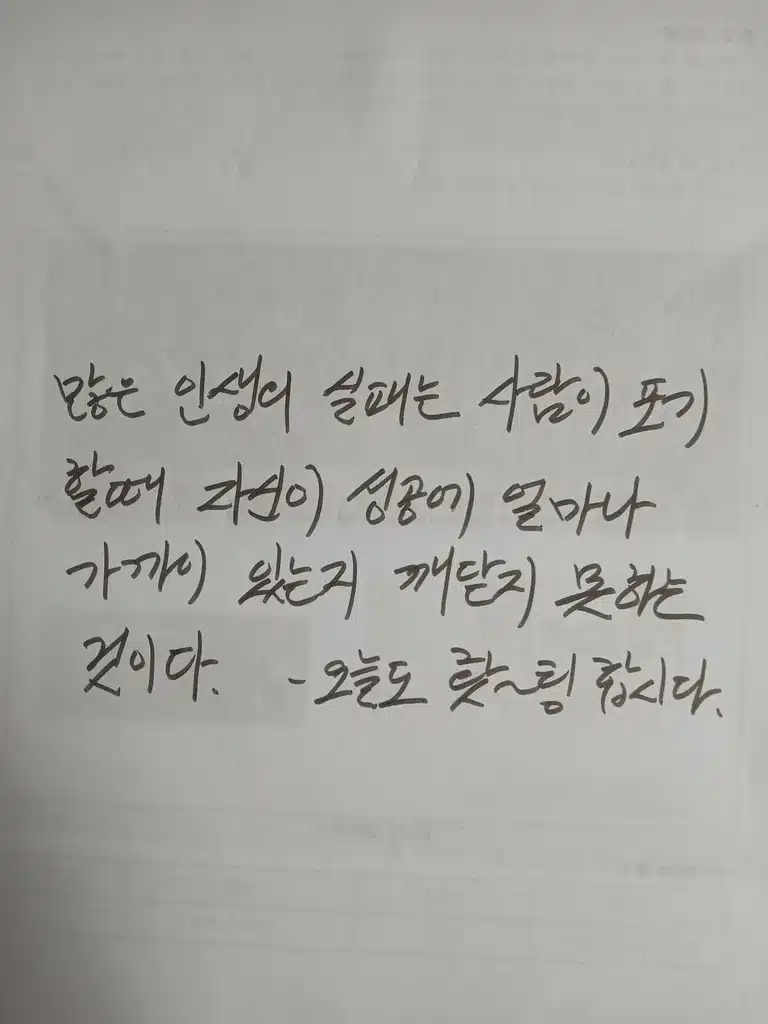 많은 인생의 실패는 사람이 포기
할때 자신이 성공에 얼마나
가까이 있는지 깨닫지 못하는
것이다. -오늘도 홧~팅 합시다.